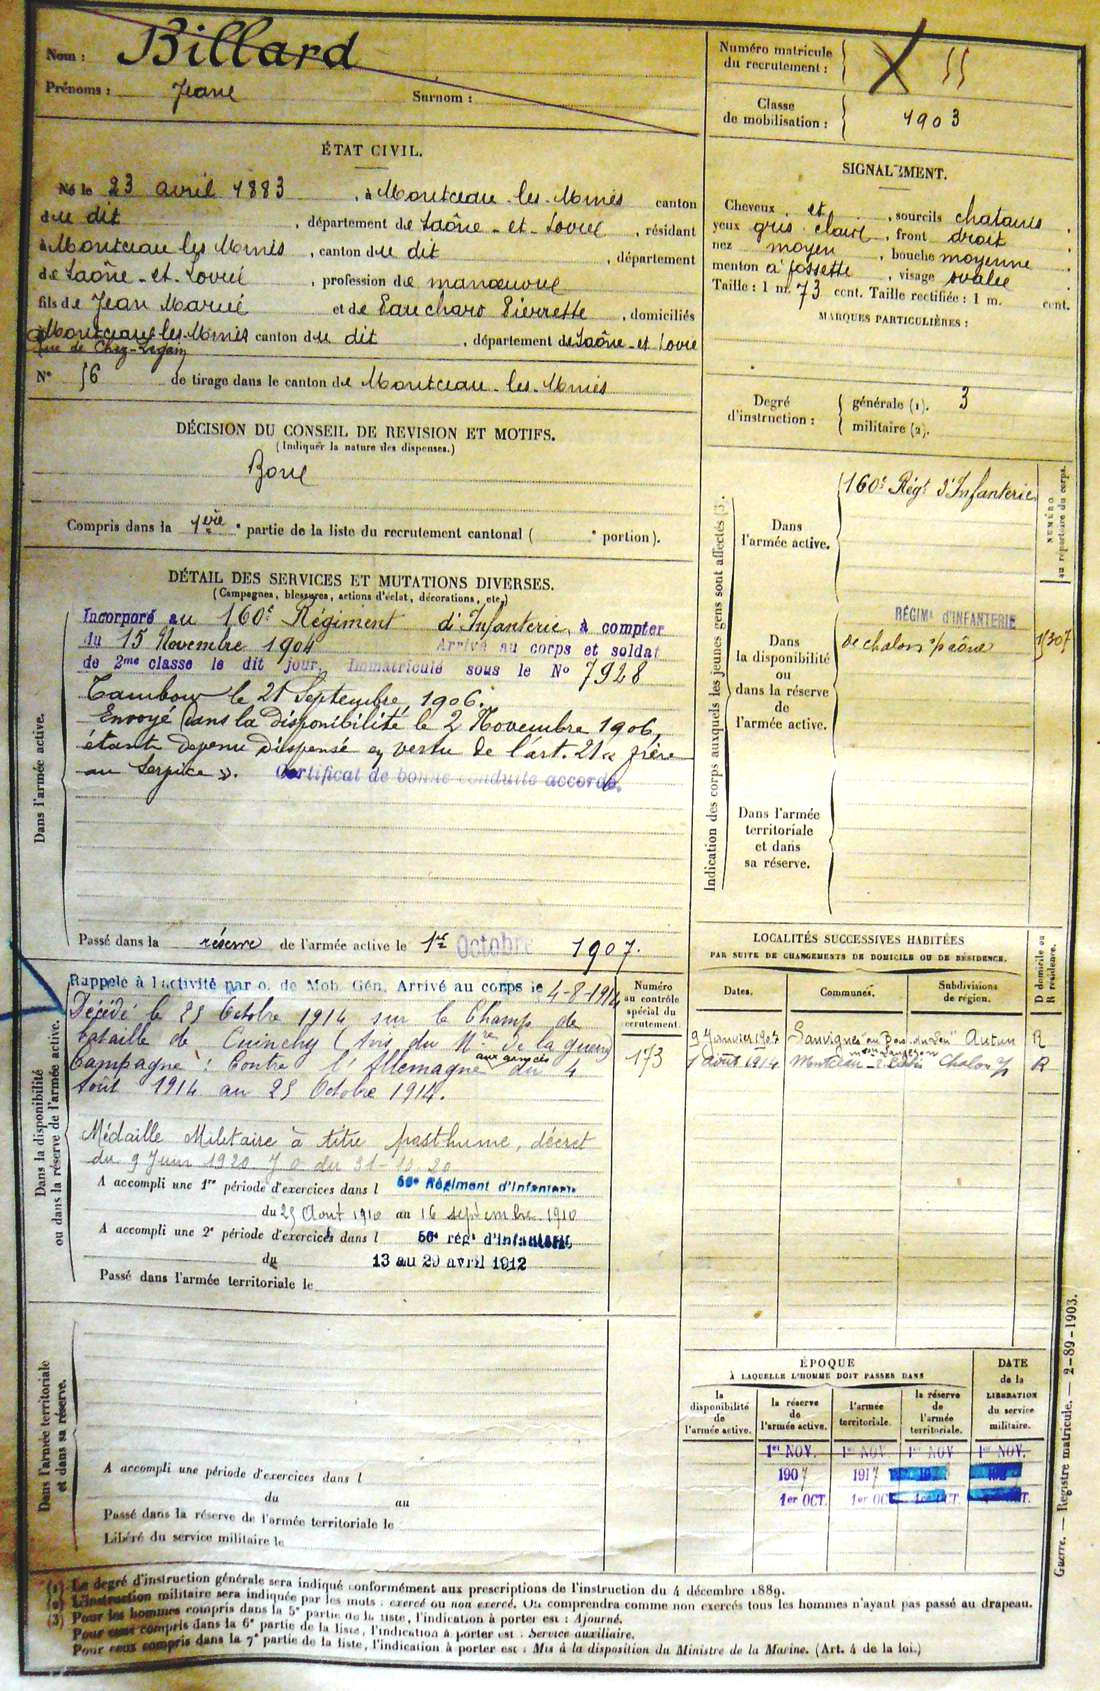 Nom : Billard
Prénoms : Jean Surnom :
Numéro matricule
du recrutement : 55
Classe
de mobilisation : 1903
ÉTAT CIVIL.
Né le 23 avril 1883, à Montceau-les-Mines canton
du dit, département de Saône-et-Loire, résidant
à Montceau les Mines, canton du dit, département
de Saône-et-Loire, profession de manœuvre
fils de Jean Marie et de Pierrette, domiciliés
à Montceau-les-Mines canton du dit, département de Saône-et-Loire
rue de Chez-
N° 56 de tirage dans le canton de Montceau-les-Mines
SIGNALEMENT.
Cheveux et, sourcils chatains,
yeux gris clair, front droit
nez moyen, bouche moyenne
menton à fossette, visage ovale
Taille : 1 m. 73 cent. Taille rectifiée : 1 m. cent.
MARQUES PARTICULIÈRES :
Degré
d'instruction :
générale (1). 3
militaire (2).
DÉCISION DU CONSEIL DE REVISION ET MOTIFS.
(Indiquer la nature des dispenses.)
Bon
Compris dans la 1ère partie de la liste du recrutement cantonal ( portion).
DÉTAIL DES SERVICES ET MUTATIONS DIVERSES.
(Campagnes, blessures, actions d'éclat, décorations, etc.)
Dans l'armée active.
Incorporé au 160e Régiment d'Infanterie à compter
du 15 Novembre 1904 Arrivé au corps et soldat
de 2me classe le dit jour. Immatriculé sous le N° 7928
Tambour le 21 Septembre 1906.
Envoyé dans la disponibilité le 2 Novembre 1906,
étant devenu dispensé en vertu de l'art. 21 « frère
au service ». Certificat de bonne conduite accordé.
Passé dans la réserve de l'armée active le 1er Octobre 1907.
Indication des corps auxquels les jeunes gens sont affectés (3).
Dans
l'armée active.
160e Régt d'Infanterie
NUMÉRO
au répertoire du corps.
Dans
la disponibilité
ou
dans la réserve
de
l'armée active.
RÉGIMt d'INFANTERIE
de chalon s/ Saône
Dans l'armée
territoriale
et dans
sa réserve.
Dans la disponibilité
ou dans la réserve de l'armée active.
Rappelé à l'activité par o. de Mob. Gén. Arrivé au corps le 4-8-1914
Décédé le 25 Octobre 1914 sur le Champ de
bataille de Cuinchy (Avis du Mre de la guerre
Campagne : Contre l'Allemagne aux armées du 4
Août 1914 au 25 Octobre 1914.
Médaille Militaire à titre posthume, décret
du 9 Juin 1920 J.O. du 31-10-20
A accompli une 1re période d'exercices dans l 56e Régiment d'Infanterie
du 25 Août 1910 au 16 septembre 1910
A accompli une 2e période d'exercices dans l 56e régt d'Infanterie
du 13 au 29 avril 1912
Passé dans l'armée territoriale le
Numéro
au contrôle
spécial du
recrutement.
173
LOCALITÉS SUCCESSIVES HABITÉES
PAR SUITE DE CHANGEMENTS DE DOMICILE OU DE RÉSIDENCE.
Dates. Communes. Subdivisions
de région.
D domicile ou
R résidence.
9 Janvier 1907 Sanvignes Autun R
1 août 1914 Chalon R
Dans l'armée territoriale
et dans sa réserve.
A accompli une période d'exercices dans l
du au
Passé dans la réserve de l'armée territoriale le
Libéré du service militaire le
ÉPOQUE
À LAQUELLE L'HOMME DOIT PASSER DANS
la
disponibilité
de
l'armée active.
la réserve
de
l'armée active.
l'armée
territoriale.
la réserve
de
l'armée
territoriale.
DATE
de la
LIBÉRATION
du service
militaire.
1er NOV. 1er NOV 1er NOV 1er NOV.
1907 1917
1er OCT. 1er OCT
Guerre. — Registre matricule. — 2-89-1903.
(1) Le degré d'instruction générale sera indiqué conformément aux prescriptions de l'instruction du 4 décembre 1889.
(2) L'instruction militaire sera indiquée par les mots : exercé ou non exercé. On comprendra comme non exercés tous les hommes n'ayant pas passé au drapeau.
(3) Pour les hommes compris dans la 5e partie de la liste, l'indication à porter est : Ajourné.
Pour ceux compris dans la 6e partie de la liste, l'indication à porter est : Service auxiliaire.
Pour ceux compris dans la 7e partie de la liste, l'indication à porter est : Mis à la disposition du Ministre de la Marine. (Art. 4 de la loi.)